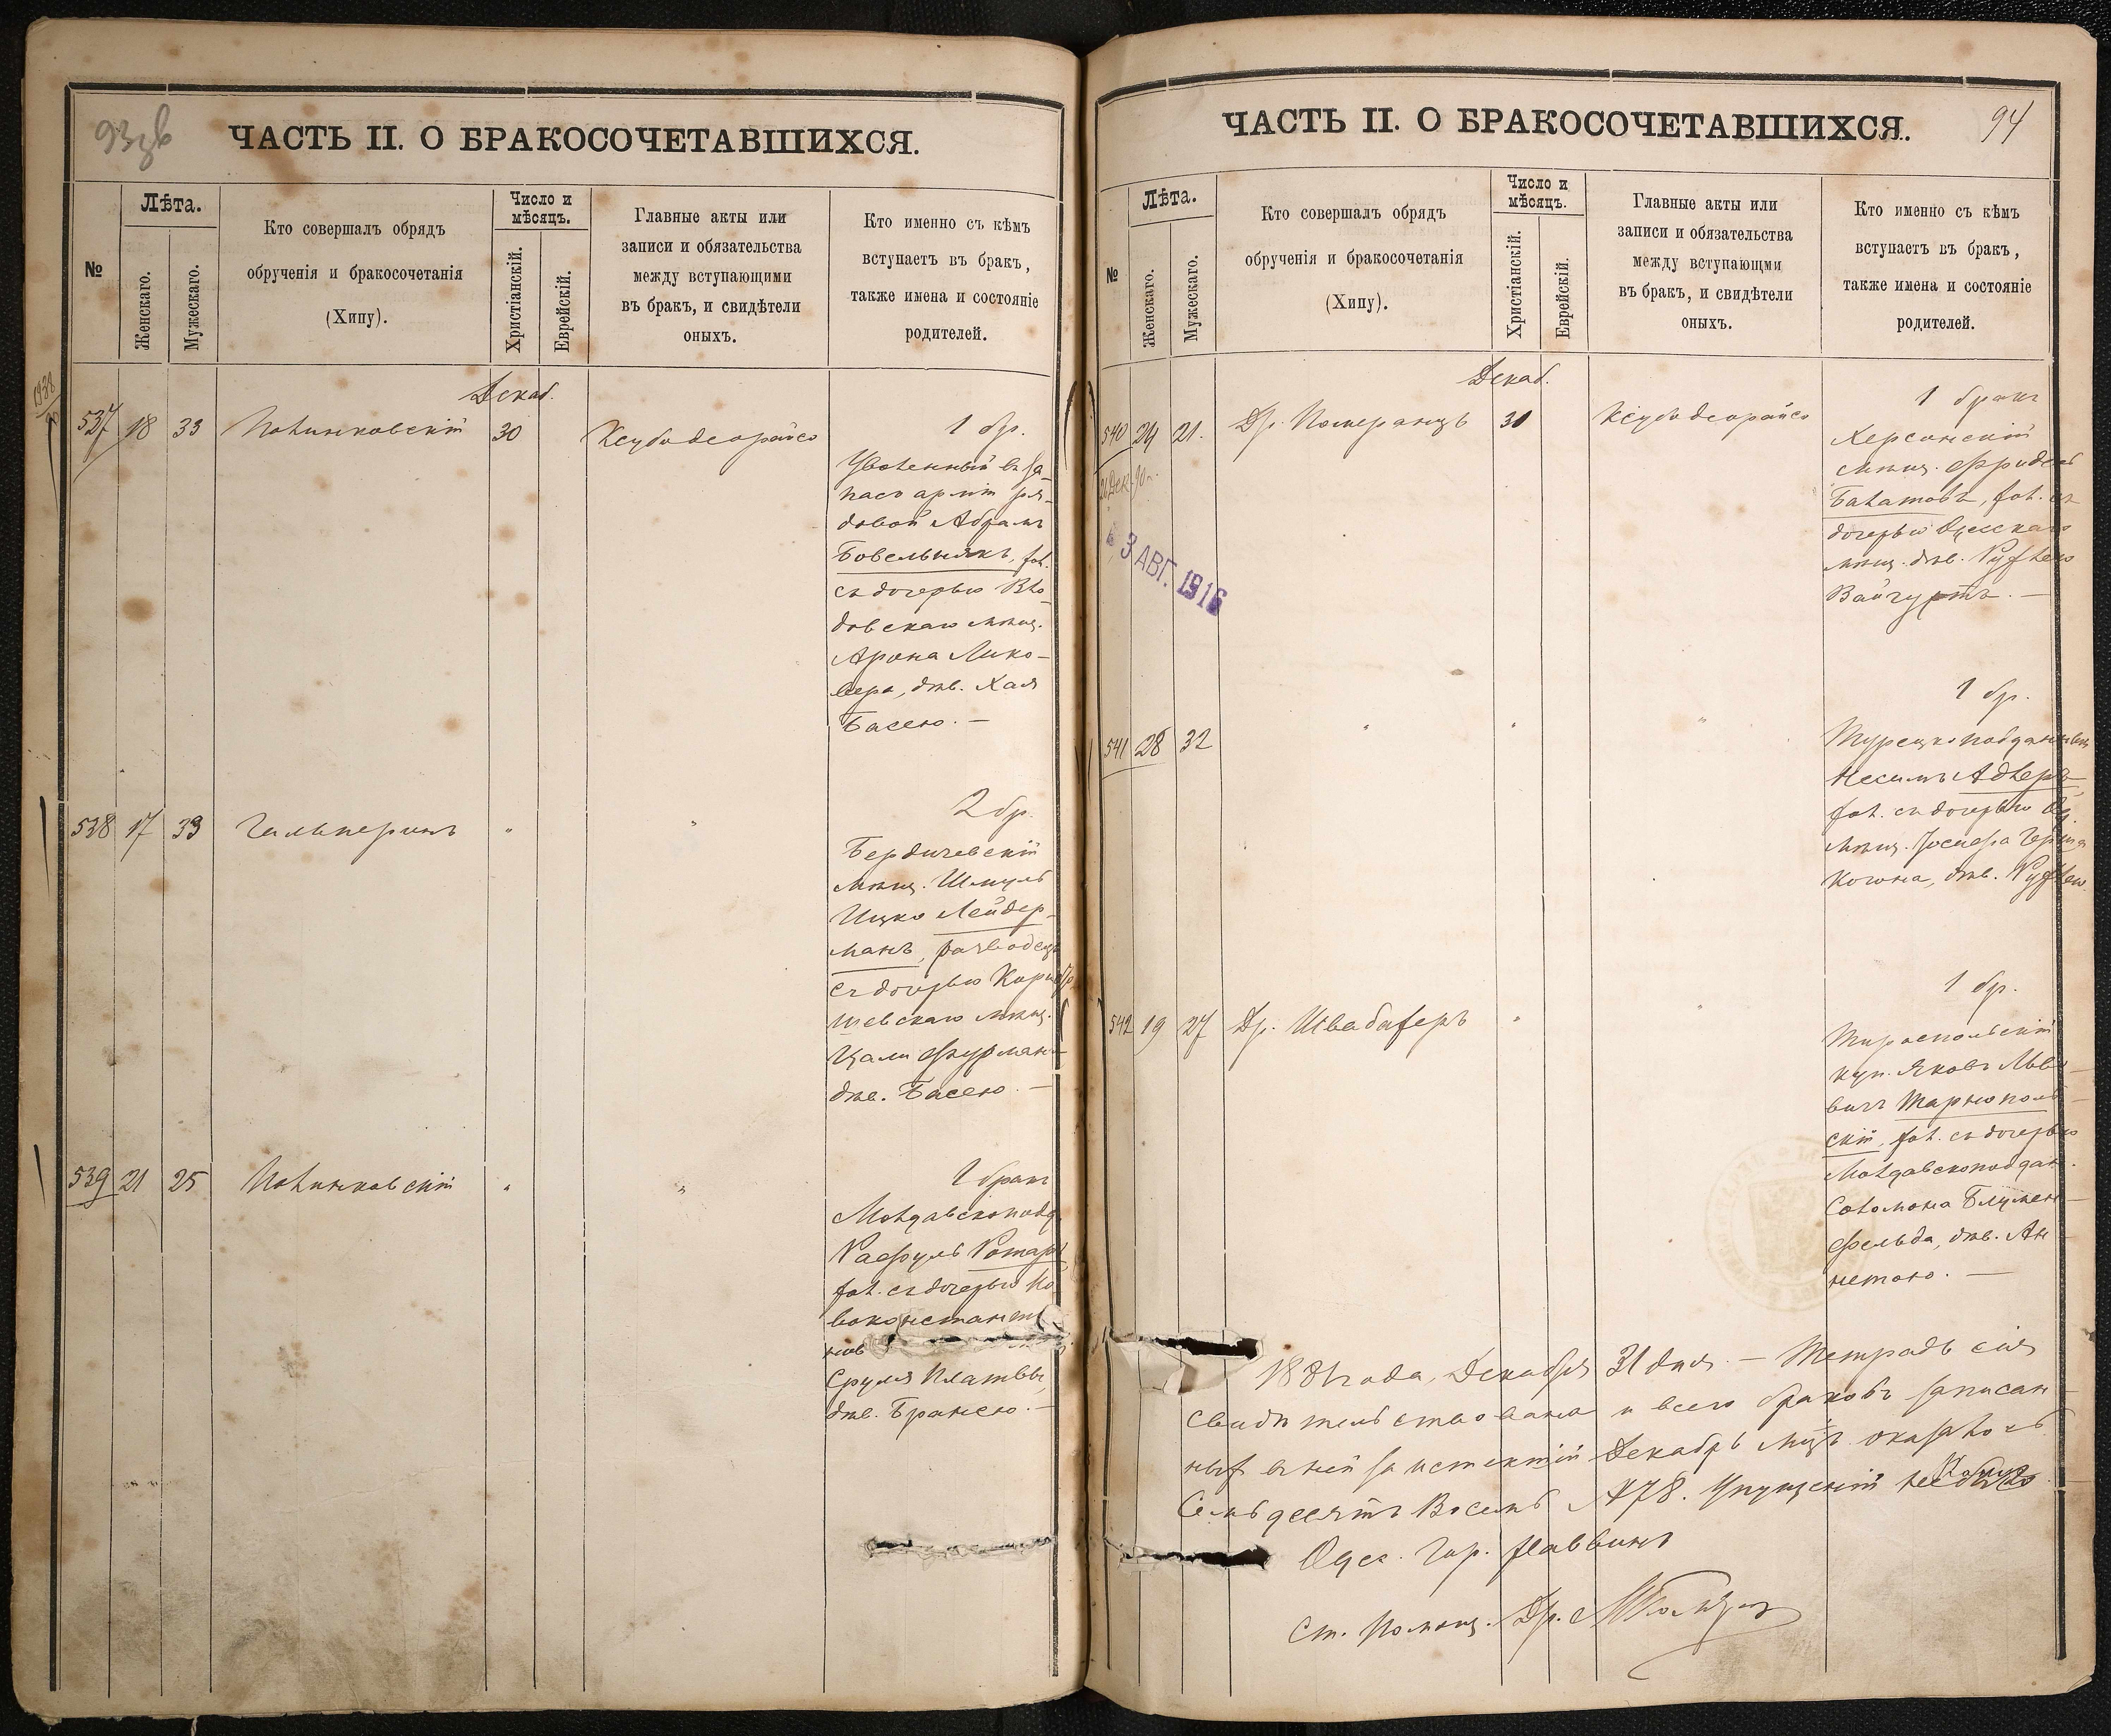 93зв
ЧАСТЬ II. О БРАКОСОЧЕТАВШИХСЯ.
№
Лѣта.
Женскаго.
Мужескаго.
Кто совершалъ обрядъ
обрученія и бракосочетанія
(Хипу).
Число и
мѣсяцъ.
Христіанскій.
Еврейскій.
Главные акты или
записи и обязательства
между вступающими
въ бракъ, и свидѣтели
оныхъ.
Кто именно съ кѣмъ
вступаетъ въ бракъ,
также имена и состояніе
родителей.
Декаб.
537 18 33 Полинковскій 30 Ксубодеорайсо
1 бр.
Уволенный въ за-
пасъ арміи ря-
довой Абрамъ
Бовельникъ, хол.
съ дочерью Вло-
довскаго мѣщ.
Арона Лико-
вера, дѣв. Хая
Басею. —
538 17 33 Гальперинъ " "
2 бр.
Бердичевскій
мѣщ. Шмуль
Ицко Лейдер-
манъ, разводецъ
съ дочерью
шевскаго мѣщ.
Цали Фурман-
дѣв. Басею. —
539 21 25 Полинковскій " "
1 бракъ
Молдавскоподд.
Расфуль Ротарь,
хол. съ дочерью Но-
воконстанти
нов
Сруля
дѣв. Бранею. —
94
ЧАСТЬ II. О БРАКОСОЧЕТАВШИХСЯ.
№
Лѣта.
Женскаго.
Мужескаго.
Кто совершалъ обрядъ
обрученія и бракосочетанія
(Хипу).
Число и
мѣсяцъ.
Христіанскій.
Еврейскій.
Главные акты или
записи и обязательства
между вступающми
въ бракъ, и свидѣтели
оныхъ.
Кто именно съ кѣмъ
вступаетъ въ бракъ,
также имена и состояніе
родителей.
Декаб.
540 24 21. Др. Померанцъ 30 Ксубодеорайсо
3 АВГ. 1916
1 бракъ
Херсонскій
мѣщ. Фридель
Балатовъ, хол. съ
дочерью Одесскаго
мѣщ. дѣв. Рухлею
Вайгуртъ. —
541 28 32 " " "
1 бр.
Турецкоподданный
Несимъ Адлеръ,
хол. съ дочерью Од.
мѣщ. Іосифа Герша
Когона, дѣв. Рухлею.
542 19 27 Др. Швабахеръ " "
1 бр.
Тираспольскій
куп. Яковъ Льво-
вичъ Тарнополь-
скій, хол. съ дочерью
Молдавскоподдан.
Соломона Блумен-
фельда, дѣв. Ан-
нетою. —
1881 года, Декабря 31 дня. — Тетрадь сія
свидѣтельствована и всего браковъ записан-
ныхъ въ ней за истекшій Декабрь мцъ оказалось
Семьдесятъ Восемь №78. Упущеній
Одес. Гор. Раввинъ
Ст. Помощ. Др.